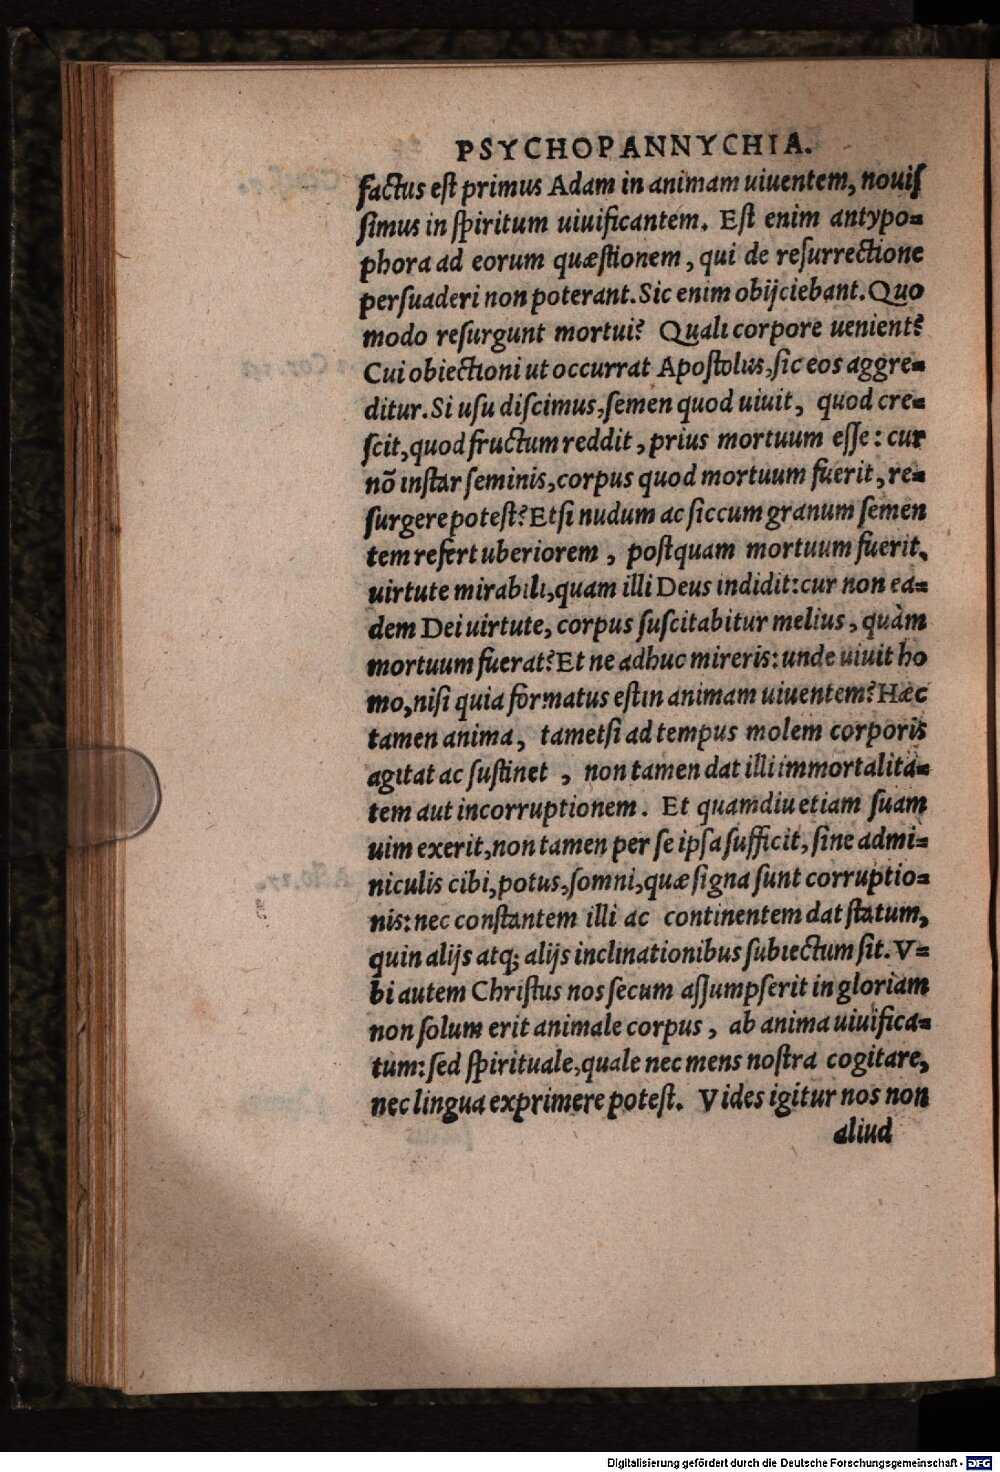 PSYCHOPANNYCHIA.
factus est primus Adam in animam uiuentem, nouiſ
ſimus in ſpiritum uiuificantem. Eſt enim antypo=
phora ad eorum quæſtionem, qui de reſurrectione
perſuaderi non poterant. Sic enim obijciebant. Quo
modo reſurgunt mortui? Quali corpore uenient?
Cui obiectioni ut occurrat Apoſtolus, ſic eos aggre=
ditur. Si uſu diſcimus, ſemen quod uiuit, quod cre=
ſcit, quod fructum reddit, prius mortuum eſſe: cur
nõ inſtar ſeminis, corpus quod mortuum fuerit, re=
ſurgere poteſt? Et ſi nudum ac ſiccum granum ſemen
tem refert uberiorem, poſtquam mortuum fuerit,
uirtute mirabili, quam illi Deus indidit: cur non ea=
dem Dei uirtute, corpus ſuſcitabitur melius, quàm
mortuum fuerat? Et ne adhuc mireris: unde uiuit ho
mo, niſi quia formatus eſt in animam uiuentem? Hæc
tamen anima, tametſi ad tempus molem corporis
agitat ac ſuſtinet, non tamen dat illi immortalita=
tem aut incorruptionem. Et quamdiu etiam ſuam
uim exerit, non tamen per ſe ipſa ſufficit, ſine admi=
niculis cibi, potus, ſomni, quæ ſigna ſunt corruptio=
nis: nec conſtantem illi ac continentem dat ſtatum,
quin alijs atq; alijs inclinationibus ſubiectum ſit. V=
bi autem Chriſtus nos ſecum aſſumpſerit in gloriam
non ſolum erit animale corpus, ab anima uiuifica=
tum: ſed ſpirituale, quale nec mens noſtra cogitare,
nec lingua exprimere poteſt. Vides igitur nos non
aliud
Digitalisierung gefördert durch die Deutsche Forschungsgemeinschaft - DFG